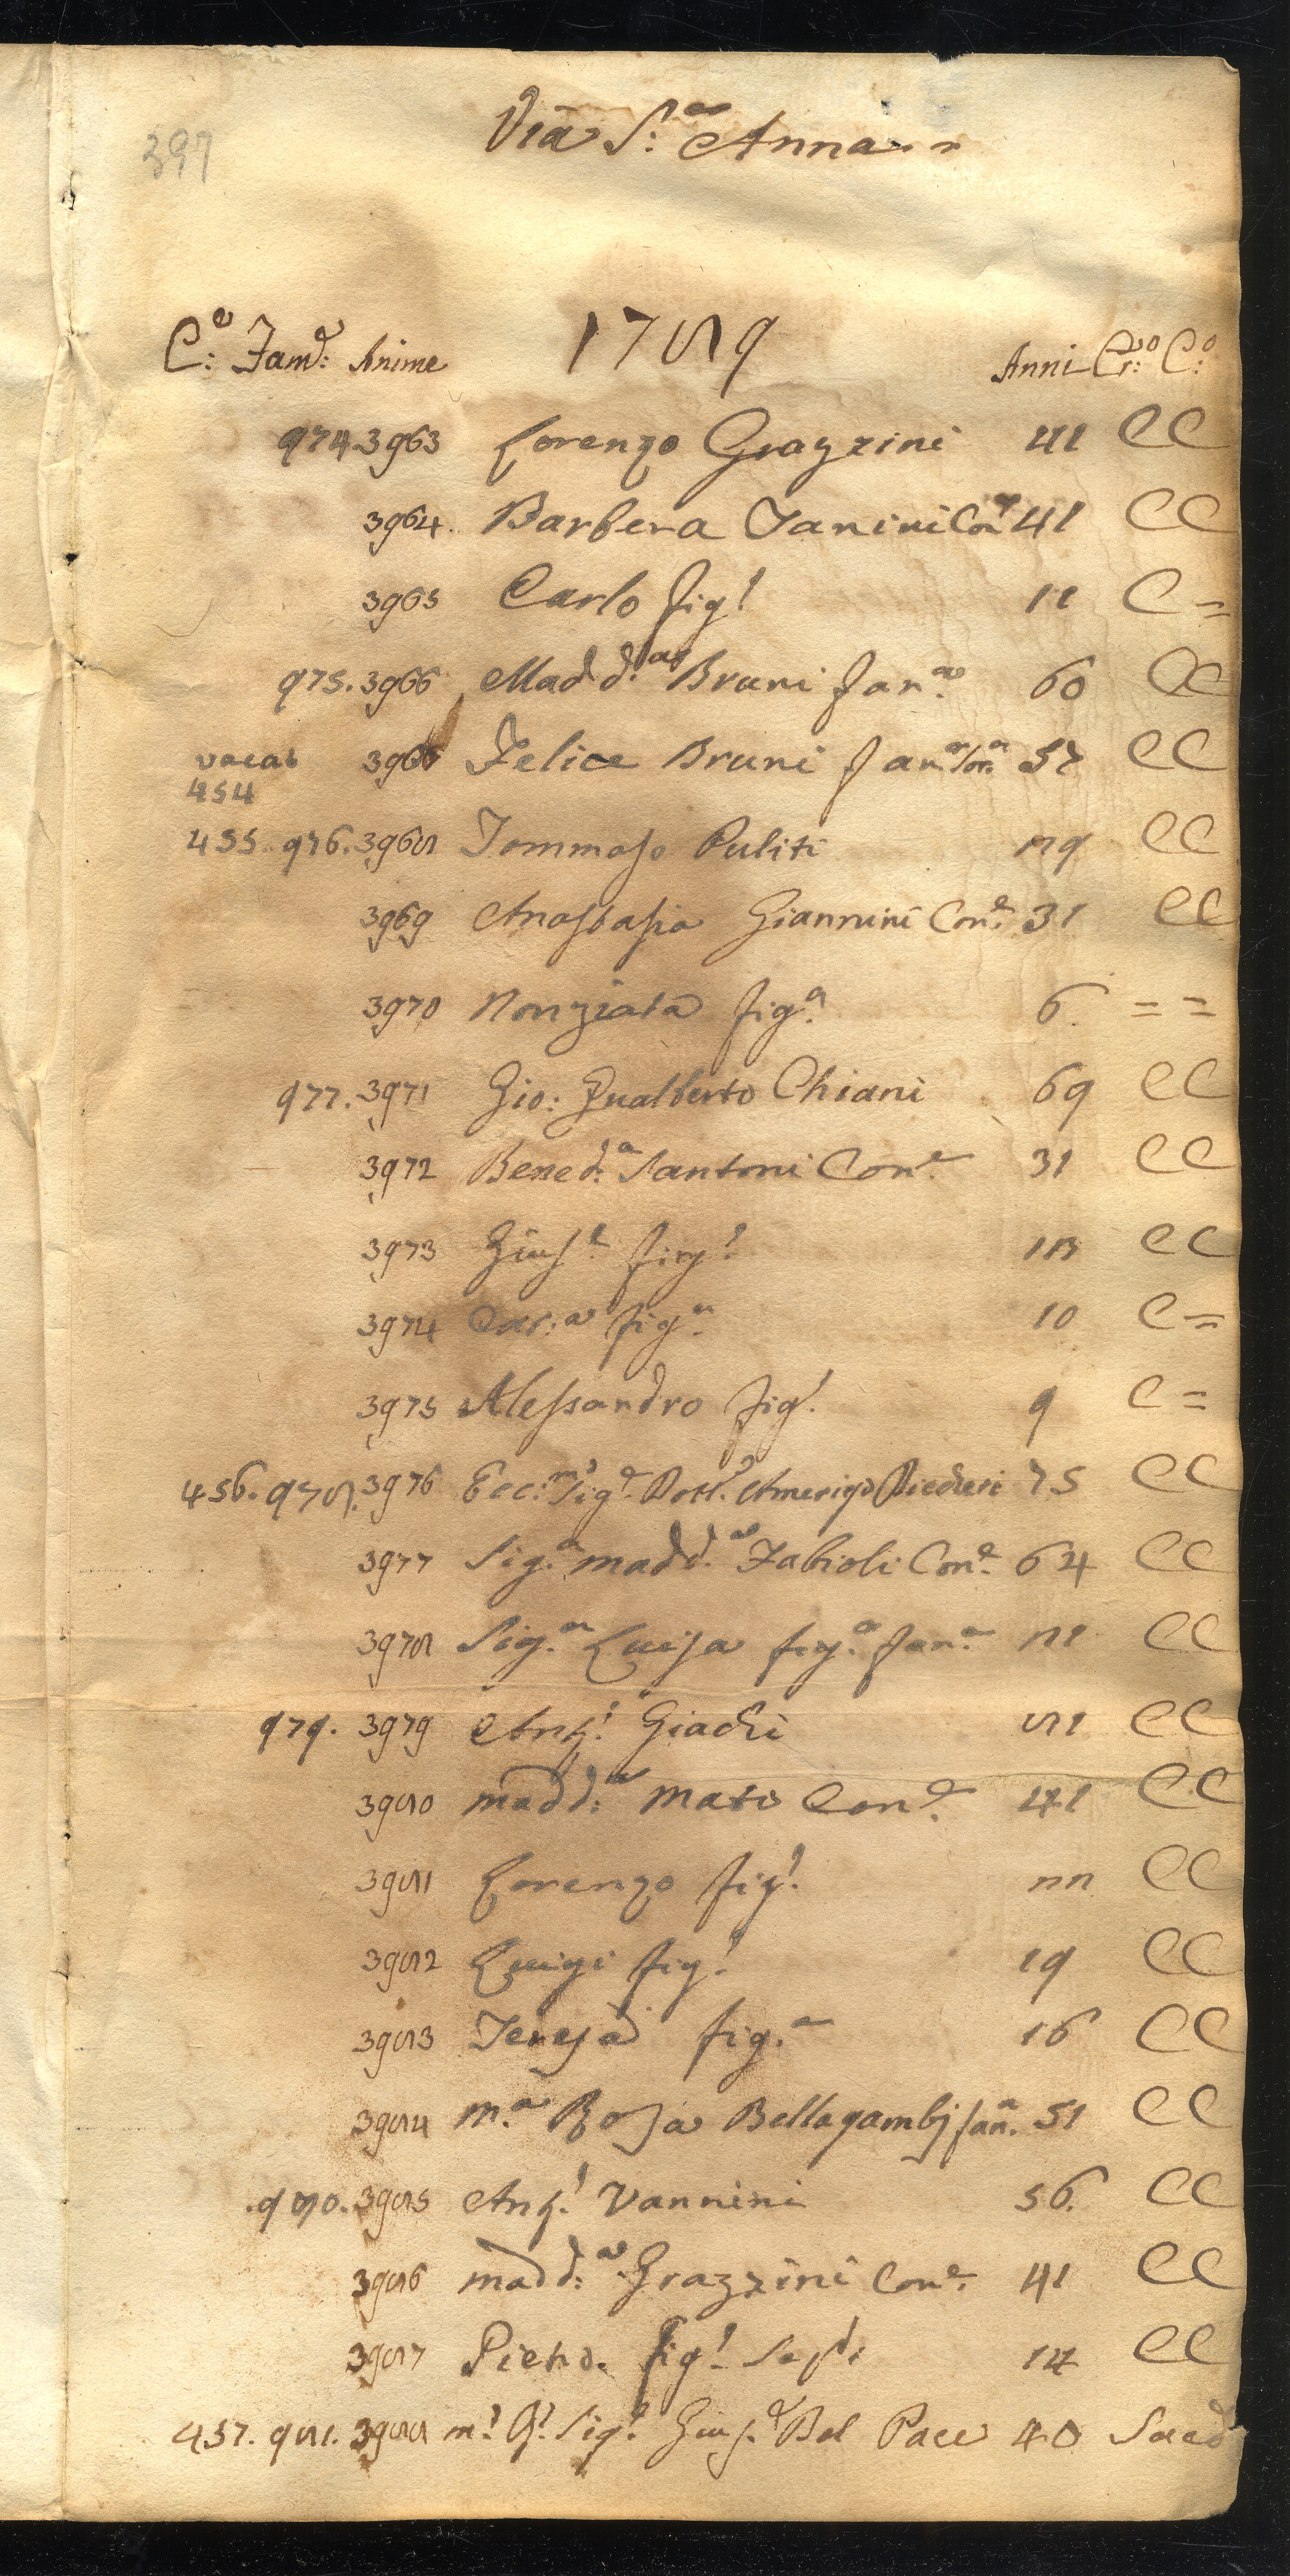 397
Via S:ᵃ Anna
1789
C:ᵉ Famᵉ: Anime Anni Cr:ᵒ C:ᵒ
974. 3963 Lorenzo Grazzini 42 CC
3964. Barbera Tanini Conᵉ 41 CC
3965 Carlo figˡ 12 C =
975. 3966 Madd:ᵃ Bruni Fanᵃ 60 CC
vacat 3967 Felice Bruni Fanᵃ Sorᵃ 57 CC
454
455. 976. 3968 Tommaso Puliti 29 CC
3969 Anastasia Giannini Conᵉ 31 CC
3970 Nonziata figᵃ 6 = =
977. 3971 Gio: Gualberto Chiani 69 CC
3972 Bened:ᵃ Santoni Conᵉ 31 CC
3973 Giusᵉ figˡ 13 CC
3974 Car:ᵃ figᵃ 10 C =
3975 Alessandro figˡ 9 C =
456. 978. 3976 Ecc:ᵐᵒ Sigᵉ Dottᵉ Amerigo 75 CC
3977 Sig:ᵃ Maddᵃ Fabioli Conᵉ 64 CC
3978 Sig:ᵃ Luisa figᵃ Fanᵃ 21 CC
979. 3979 Antᵒ Giachi 81 CC
3980 Madd:ᵃ Mati Conᵉ 41 CC
3981 Lorenzo figˡ 22 CC
3982 Luigi figˡ 19 CC
3983 Teresa figᵃ 16 CC
3984 Mᵃ Rosa Bellagambj fanᵃ 51 CC
980. 3985 Antᵒ Vannini 56. CC
3986 Madd:ᵃ Grazzini Conᵉ 41 CC
3987 Pietro figˡ 14 CC
457. 981. 3988 mˡ Rˡ Sigˡ Giusᵉ Del Pace 40 Sacᵈ